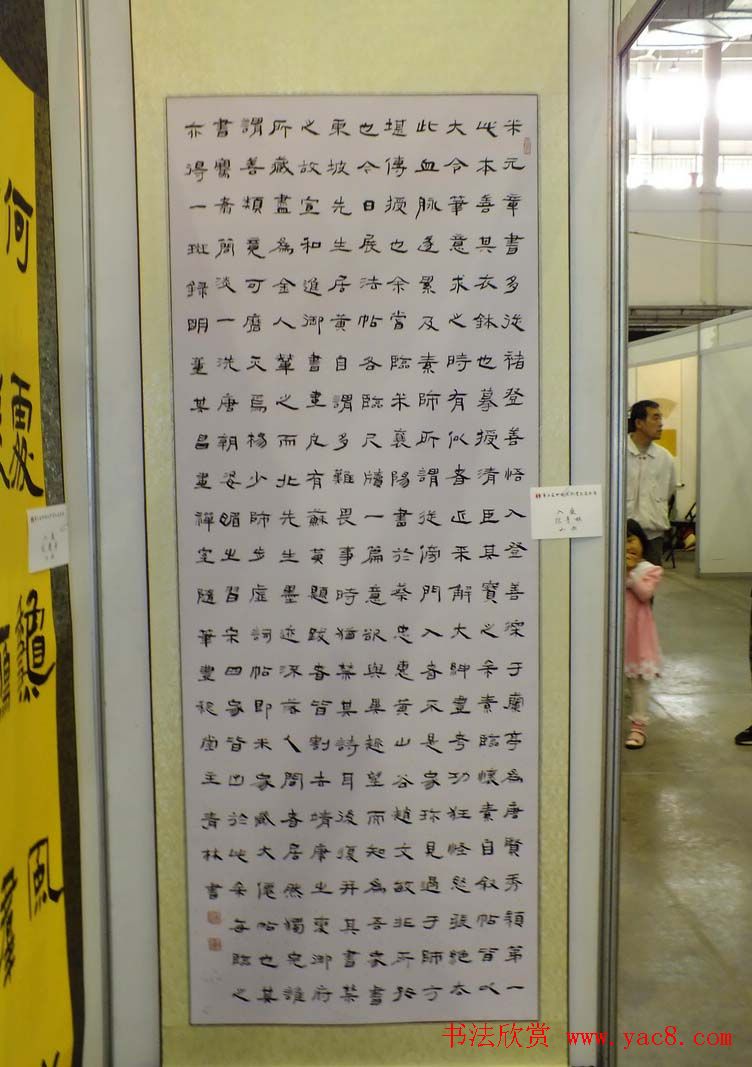 米元章書多從褚登善悟入登善深于蘭亭為唐賢秀穎第一
此本善其衣鉢也摹授清臣其寶之余素臨懷素自叙帖皆以
大令筆意求之時有似者近来解大紳豐考功狂怪怒張絕去
此血脉遂累及素師所謂從傍門入者不是家珍見過于師方
堪傳授也余嘗臨米襄陽書於蔡忠惠黃山谷趙文敏非所好
也今日展法帖各臨尺牘一篇意欲與異趣望而知為吾家書
東坡先生居黃自謂多難畏事時猶禁其詩耳後復并其書禁
之故宣和進御書畫凡有蘇黃題跋者皆割去靖康之變御府
所藏盡為金人輦之而北先生墨迹流落人間者居然獨完誰
謂善類竟可磨滅焉楊少師步虛詞帖即米家藏大僊帖也其
書騫翥簡淡一洗唐朝姿媚之習宋四家皆出於此余每臨之
亦得一斑錄明董其昌畫禪室隨筆豐稔堂主青林書
入展
何
书法欣赏 www.yac8.com